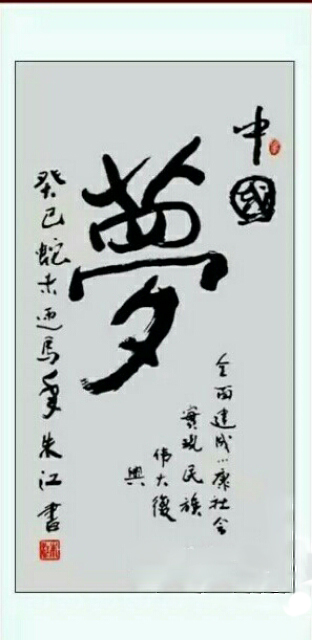 中國
夢
全面建成小康社会
實现民族
伟大復
興
癸巳蛇末迎馬年朱江書